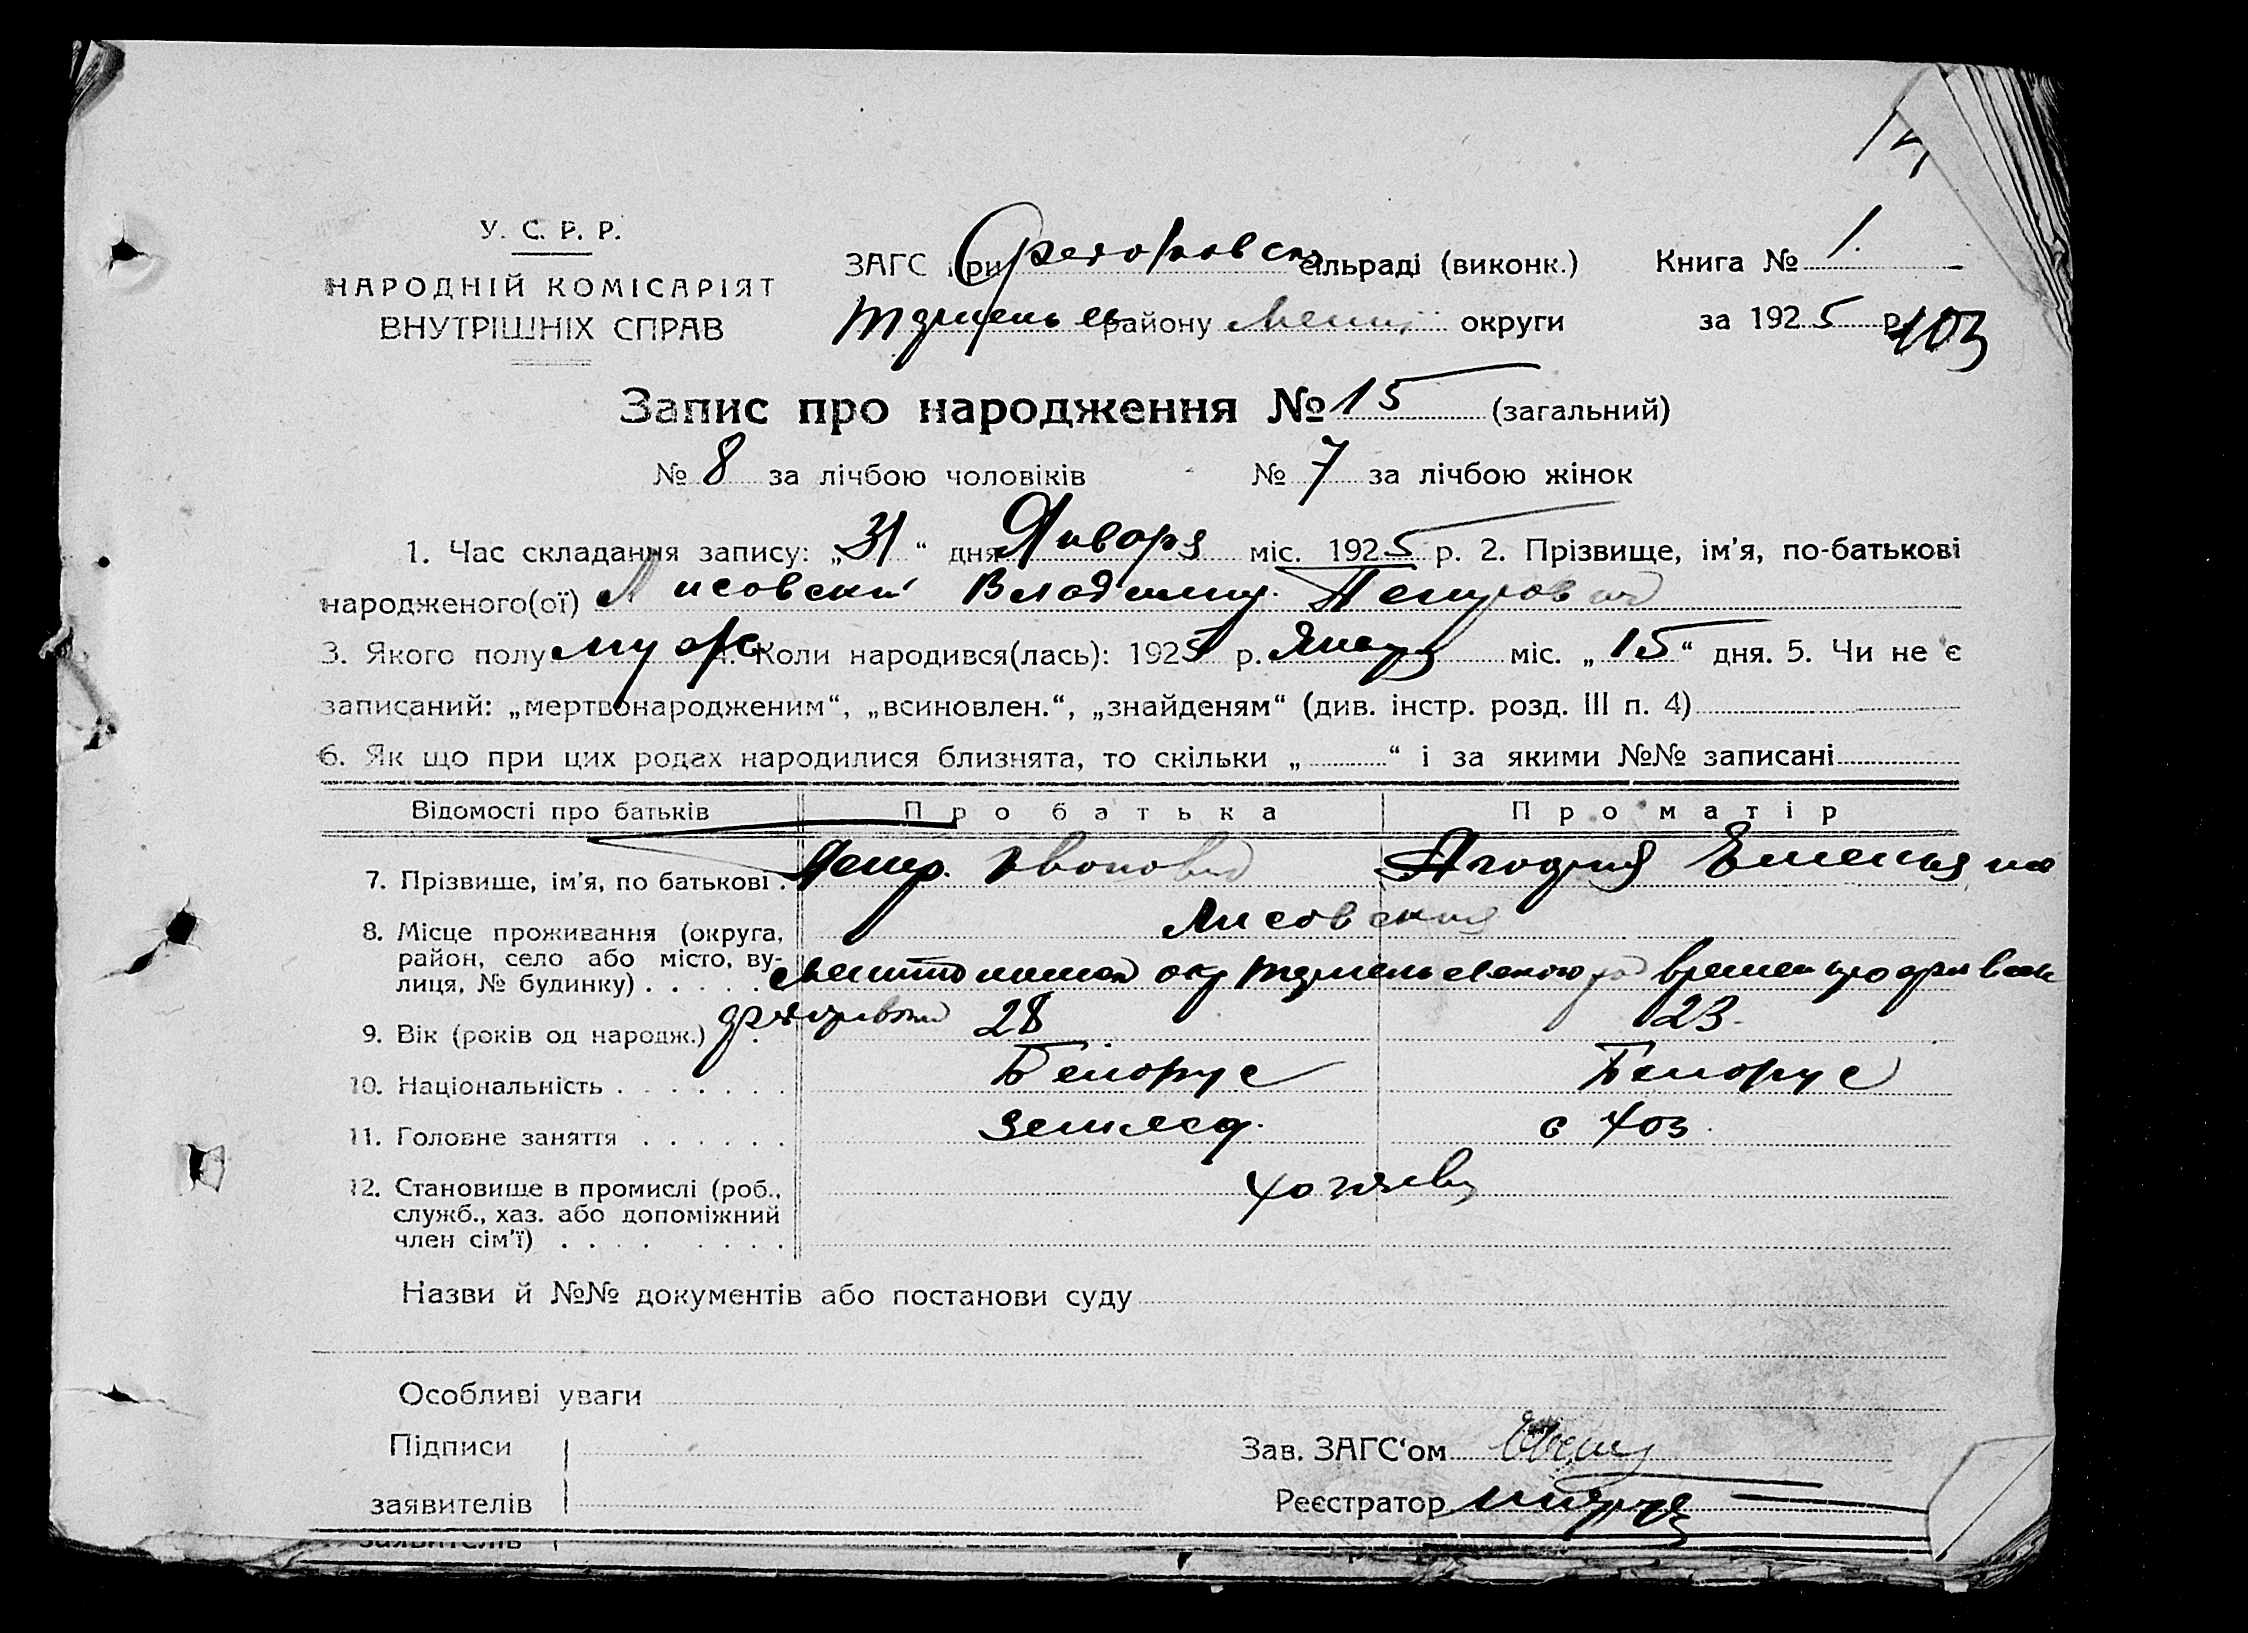 У. С. Р. Р.
НАРОДНІЙ КОМІСАРІЯТ
ВНУТРІШНІХ СПРАВ
ЗАГС при сільраді (виконк.)
району округи
Книга № 1.
за 1925 р.
103
Запис про народження № 15 (загальний)
№ 8 за лічбою чоловіків № 7 за лічбою жінок
1. Час складання запису: „31“ дня Января міс. 1925 р. 2. Прізвище, ім’я, по-батькові
народженого(ої) Лисовский Владимир Петрович
3. Якого полу муж 4. Коли народився(лась): 1925 р. Января міс. „15“ дня. 5. Чи не є
записаний: „мертвонародженим“, „всиновлен.“, „знайденям“ (див. інстр. розд. III п. 4)
6. Як що при цих родах народилися близнята, то скільки „ “ і за якими №№ записані
Відомості про батьків Про батька Про матір
7. Прізвище, ім’я, по батькові . Петр Иванович
Лисовския
8. Місце проживання (округа,
район, село або місто, ву-
лиця, № будинку) . . . . . окр
9. Вік (років од народж.) . 28 23
10. Національність . . . . . . . Белорус Белорус
11. Головне заняття . . . . . . землед. с хоз.
12. Становище в промислі (роб.,
служб., хаз. або допоміжний
член сім’ї) . . . . . . . .
Назви й №№ документів або постанови суду
Особливі уваги
Підписи
заявителів
Зав. ЗАГС‘ом
Реєстратор
заявителів